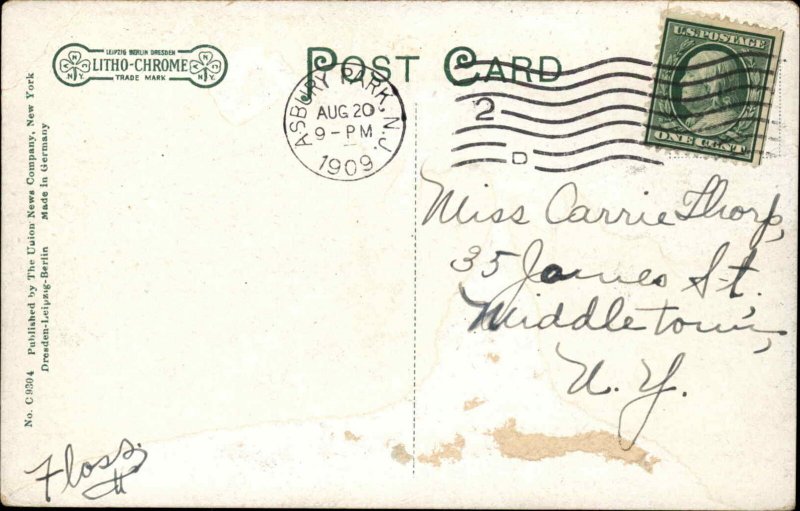 LEIPZIG BERLIN DRESDEN
LITHO-CHROME
TRADE MARK
POST CARD
ASBURY PARK, N.J.
AUG 20
9-PM
1909
2
D
U.S. POSTAGE
ONE CENT
No. C9304 Published by The Union News Company, New York
Dresden-Leipzig-Berlin Made in Germany
Miss Carrie Thorp,
35 James St.
Middletown,
N.Y.
Floss.